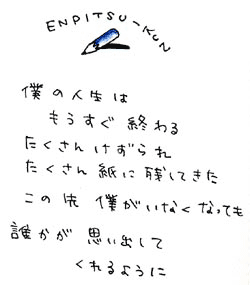 ENPITSU-KUN
僕の人生は
もうすぐ終わる
たくさんけずられ
たくさん紙に残してきた
この先 僕がいなくなっても
誰かが 思い出して
くれるように